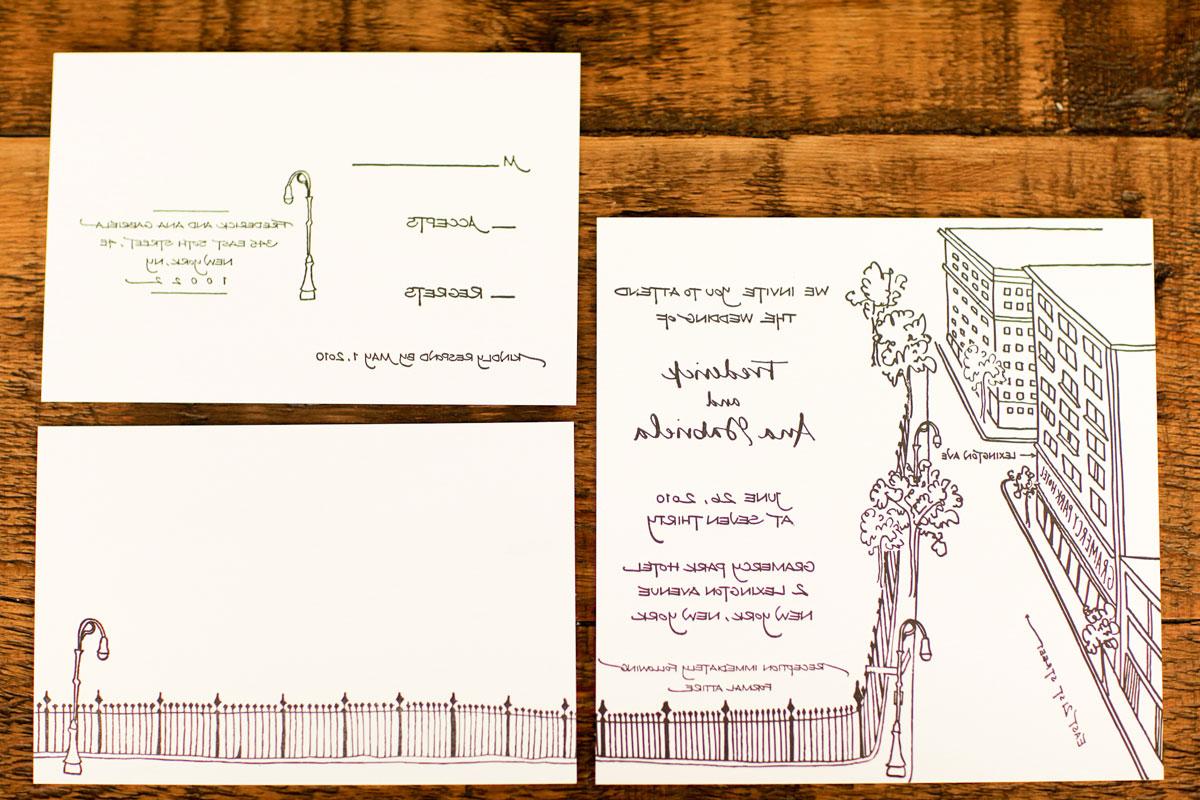 M
ACCEPTS
REGRETS
KINDLY RESPOND BY MAY 1, 2010
FREDERICK AND ANA GABRIELA
346 EAST 50TH STREET, 4E
NEW YORK, NY
10022
WE INVITE YOU TO ATTEND
THE WEDDING OF
Frederick
and
Ana Gabriela
JUNE 26, 2010
AT SEVEN THIRTY
GRAMERCY PARK HOTEL
2 LEXINGTON AVENUE
NEW YORK, NEW YORK
RECEPTION IMMEDIATELY FOLLOWING
FORMAL ATTIRE
LEXINGTON AVE
GRAMERCY PARK HOTEL
EAST 21 ST STREET